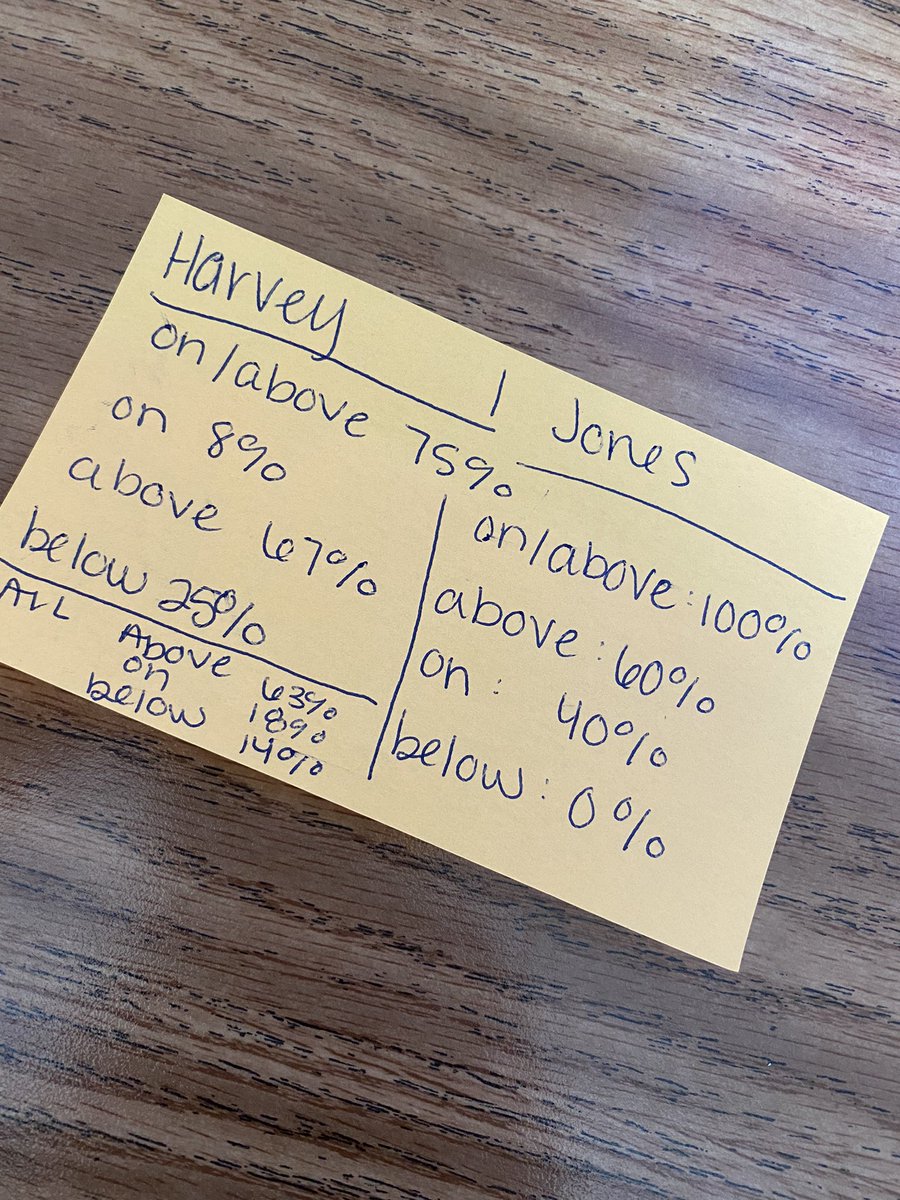 Harvey
on/above 75%
on 8%
above 67%
below 25%
ALL Above 63%
on 18%
below 14%
Jones
on/above: 100%
above: 60%
on: 40%
below: 0%